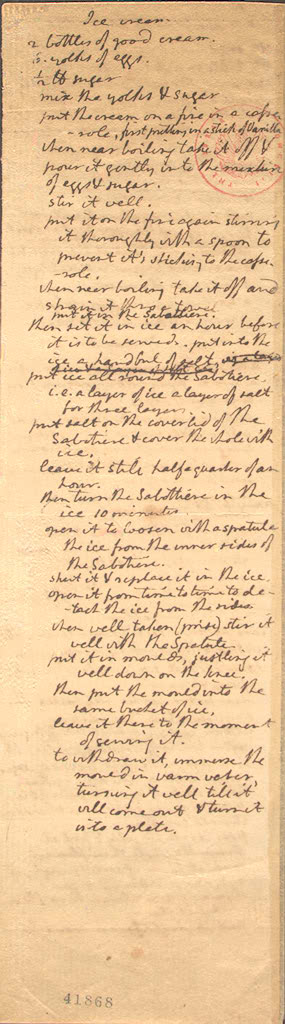 Ice cream.
2. bottles of good cream.
6. yolks of eggs.
1/2 ℔ sugar
mix the yolks & sugar
put the cream on a fire in a casse
-role, first putting in a stick of Vanilla.
when near boiling take it off &
pour it gently into the mixture
of eggs & sugar.
stir it well.
put it on the fire again stirring
it thoroughly with a spoon to
prevent it's sticking to the casse-
-role.
when near boiling take it off and
strain it thro' a towel.
put it in the Sabottiere.
then set it in ice an hour before
it is to be served. put into the
ice a handful of salt.
put ice all round the Sabottiere
i.e. a layer of ice a layer of salt
for three layers.
put salt on the coverlid of the
Sabotiere & cover the whole with
ice.
leave it still half a quarter of an
hour.
then turn the Sabottiere in the
ice 10 minutes.
open it to loosen with a spatula
the ice from the inner sides of
the Sabotiere.
shut it & replace it in the ice.
open it from time to time to de-
-tach the ice from the sides
when well taken (prise) stir it
well with the Spatula.
put it in moulds, justling it
well down on the knee.
then put the mould into the
same bucket of ice.
leave it there to the moment
of serving it.
to withdraw it, immerse the
mould in warm water,
turning it well till it
will come out & turn it
into a plate.
41868